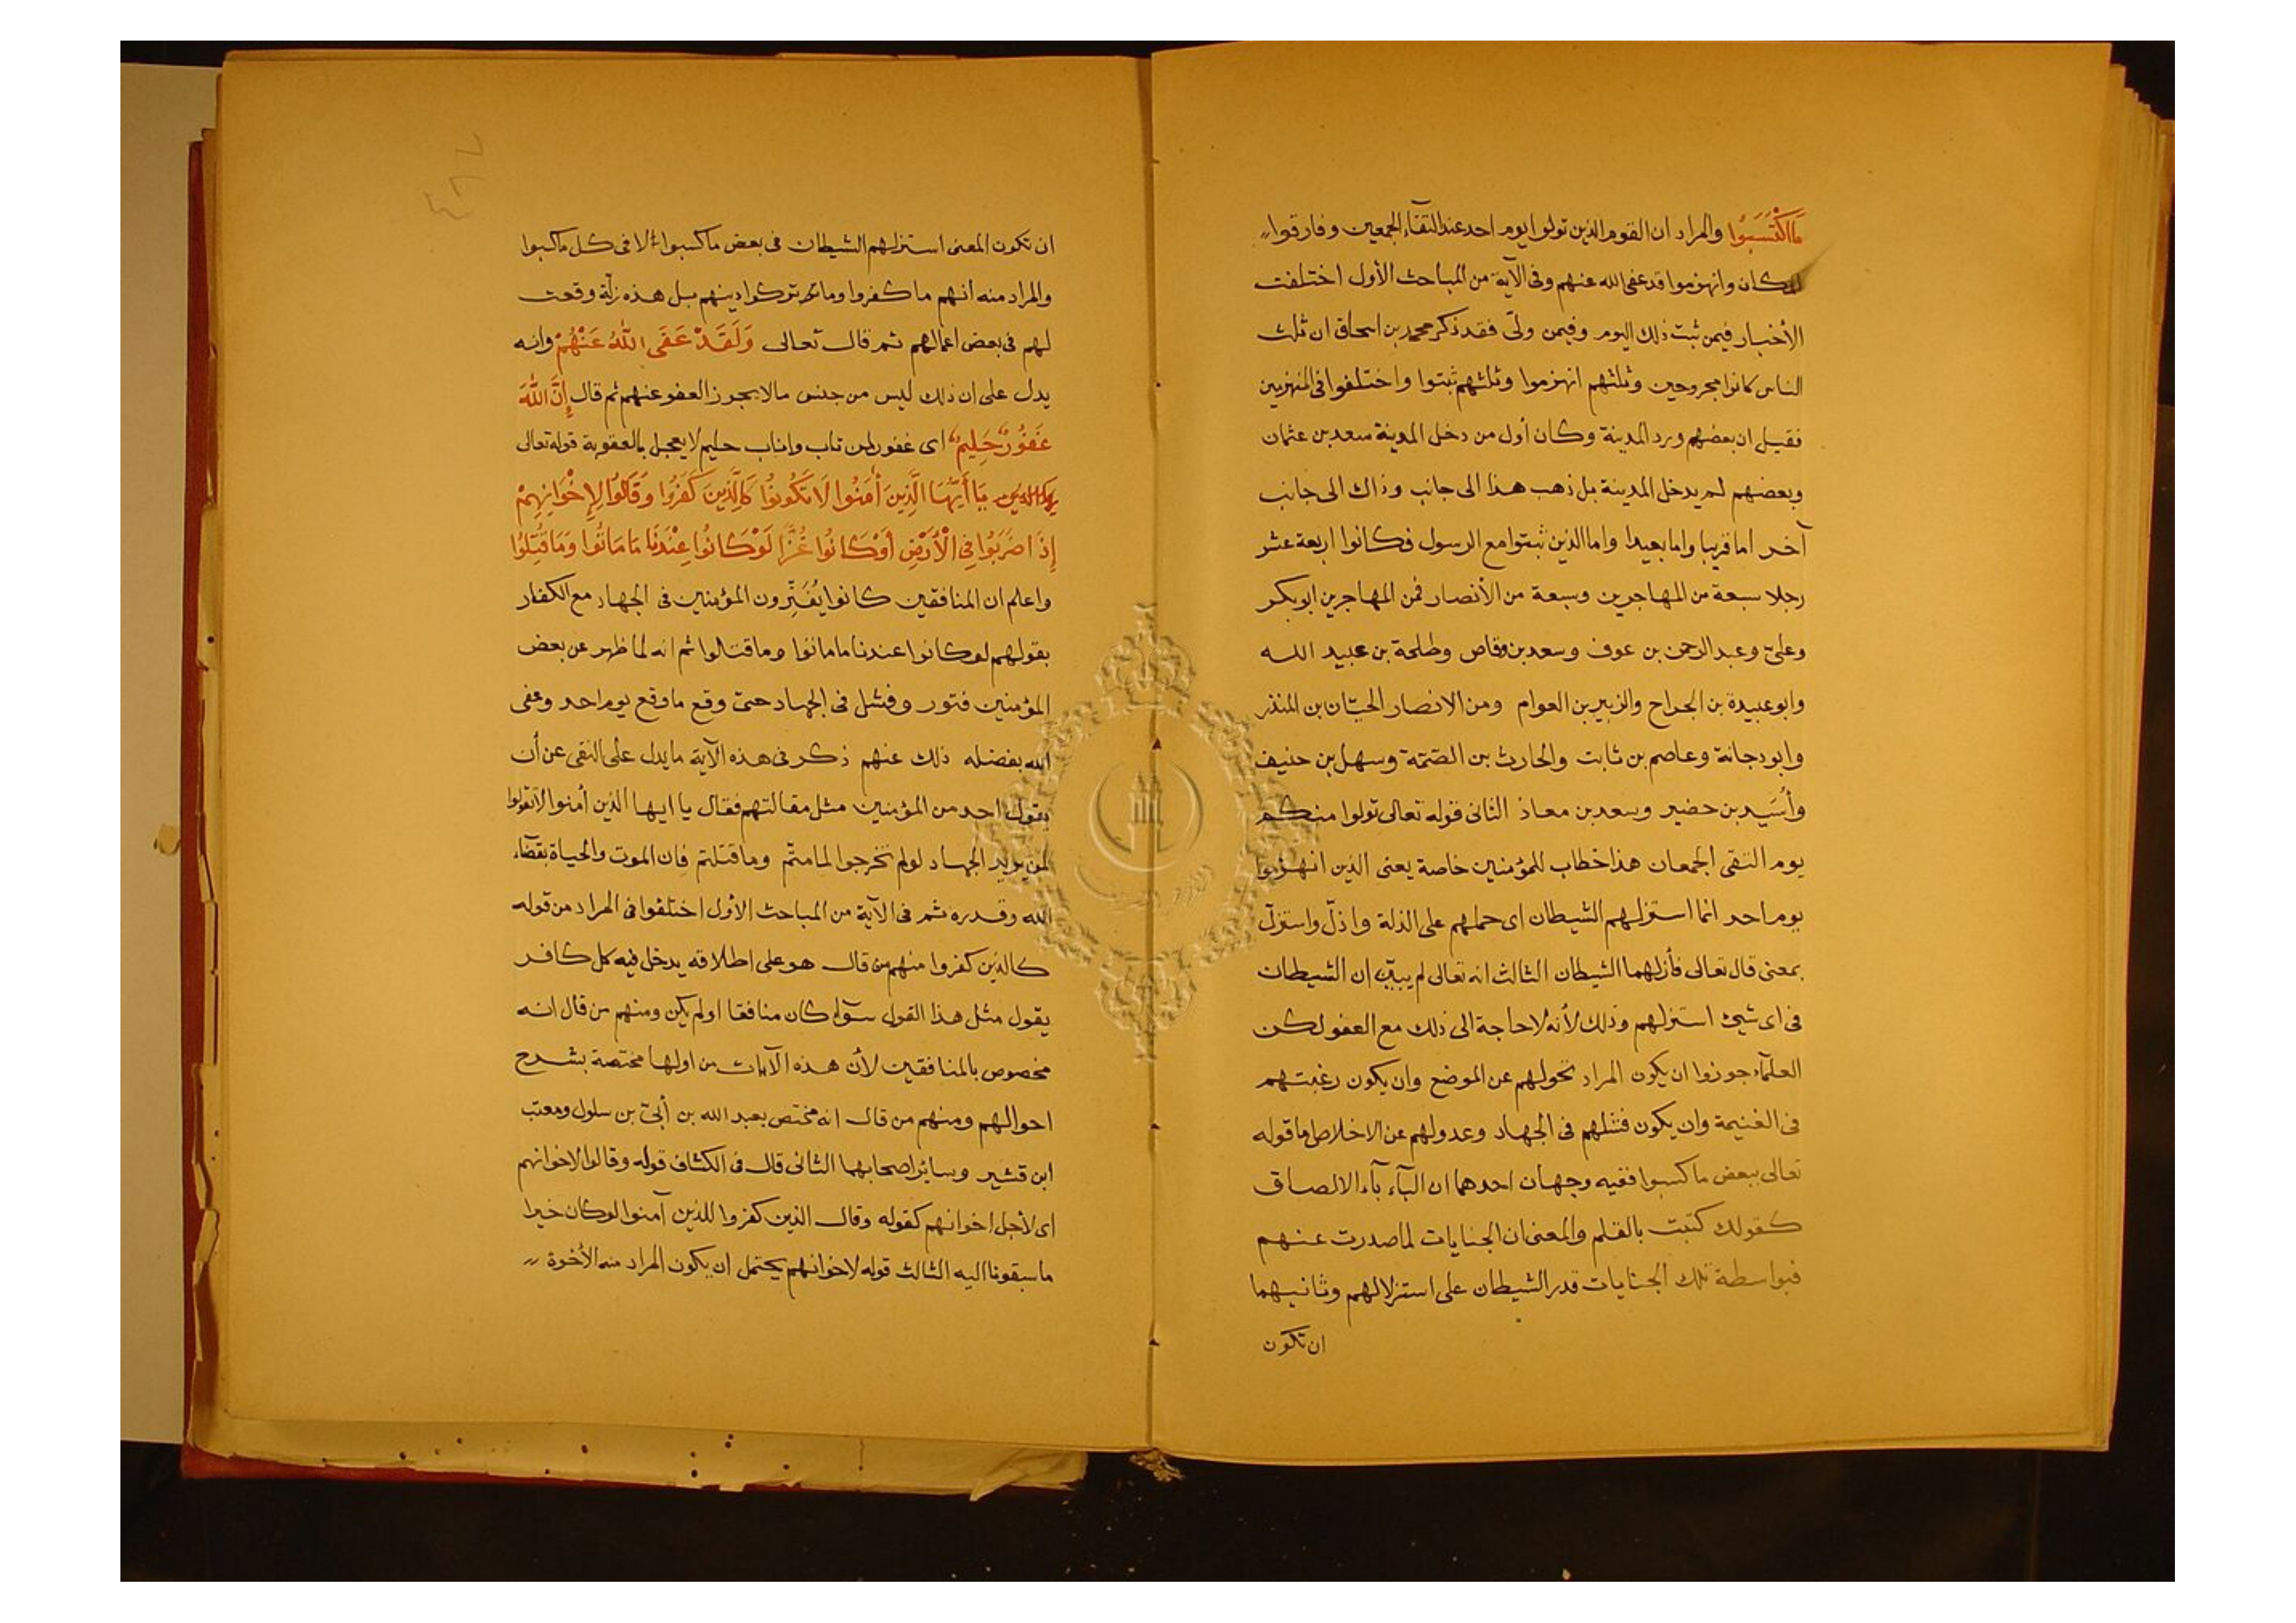 مَا اكْتَسَبُوا والمراد ان القوم الذين تولوا يوم احد عند التقآء الجمعين وفارقوا
المكان وانهزموا قد عفى الله عنهم وفى الآية من المباحث الأول اختلفت
الأخبار فيمن ثبت ذلك اليوم وفيمن ولىّ فقد ذكر محمد بن اسحاق ان ثلث
الناس كانوا مجروحين وثلثهم انهزموا وثلثهم ثبتوا واختلفوا فى المنهزمين
فقيل ان بعضهم ورد المدينة وكان أول من دخل المدينة سعد بن عثمان
وبعضهم لم يدخل المدينة بل ذهب هذا الى جانب وذاك الى جانب
آخر اما قريبا واما بعيدا واما الذين ثبتوا مع الرسول فكانوا اربعة عشر
رجلا سبعة من المهاجرين وسبعة من الأنصار فمن المهاجرين ابو بكر
وعلىّ وعبد الرحمن بن عوف وسعد بن وقاص وطلحة بن عبيد الله
وابو عبيدة بن الجراح والزبير بن العوام ومن الانصار الحبّان بن المنذر
وابو دجانة وعاصم بن ثابت والحارث بن الصّمّة وسهل بن حنيف
وأُسَيد بن حضير وسعد بن معاذ الثانى قوله تعالى تولوا منكم
يوم التقى الجمعان هذا خطاب للمؤمنين خاصة يعنى الذين انهزموا
يوم احد انما استزلهم الشيطان اى حملهم على الذلة واذلّ واستزلّ
بمعنى قال تعالى فأزلهما الشيطان الثالث انه تعالى لم يبيّن ان الشيطان
فى اى شيئ استزلهم وذلك لأنه لا حاجة الى ذلك مع العفو لكن
العلمآء جوزوا ان يكون المراد تحولهم عن الموضع وان يكون رغبتهم
فى الغنيمة وان يكون فشلهم فى الجهاد وعدولهم عن الاخلاص اما قوله
تعالى ببعض ما كسبوا ففيه وجهان احدهما ان البآء بآء الالصاق
كقولك كتبت بالقلم والمعنى ان الجنايات لما صدرت عنهم
فبواسطة تلك الجنايات قدر الشيطان على استزلالهم وثانيهما
ان تكون
ان تكون المعنى استزلهم الشيطان فى بعض ما كسبوا لا فى كل ما كسبوا
والمراد منه انهم ما كفروا وما تركوا دينهم بل هذه زلّة وقعت
لهم فى بعض اعمالهم ثم قال تعالى وَلَقَدْ عَفَى اللّٰهُ عَنْهُمْ وانه
يدل على ان ذلك ليس من جنس مالا يجوز العفو عنهم ثم قال إِنَّ اللّٰهَ
غَفُورٌ حَلِيمٌ اى غفور لمن تاب واناب حليم لا يعجل بالعقوبة قوله تعالى
يَا أَيُّهَا الَّذِينَ أٰمَنُوا لَا تَكُونُوا كَالَّذِينَ كَفَرُوا وَقَالُوا لِإِخْوَانِهِمْ
إِذَا ضَرَبُوا فِى الْأَرْضِ أَوْ كَانُوا غُزًّا لَوْ كَانُوا عِنْدَنَا مَا مَاتُوا وَمَا قُتِلُوا
واعلم ان المنافقين كانوا يُفَتِّرون المؤمنين فى الجهاد مع الكفار
بقولهم لو كانوا عندنا ما ماتوا وما قتلوا ثم انه لما ظهر عن بعض
المؤمنين فتور وفشل فى الجهاد حتى وقع ما وقع يوم احد وعفى
الله بفضله ذلك عنهم ذكر فى هذه الآية ما يدل على النهى عن أن
يقول احد من المؤمنين مثل مقالتهم فقال يا ايها الذين أمنوا لا تقولوا
لمن يريد الجهاد لو لم تخرجوا لما متّم وما قتلتم فان الموت والحياة بقضآء
الله وقدره ثم فى الآية من المباحث الأول اختلفوا فى المراد من قوله
كالذين كفروا منهم من قال هو على اطلاقه يدخل فيه كل كافر
يقول مثل هذا القول سوآء كان منافقا اولم يكن ومنهم من قال انه
مخصوص بالمنافقين لأن هذه الآيات من اولها مختصة بشرح
احوالهم ومنهم من قال انه مختص بعبد الله بن أبىّ بن سلول ومعتب
ابن قشير وسائر اصحابهما الثانى قال فى الكشاف قوله وقالوا لاخوانهم
اى لأجل اخوانهم كقوله وقال الذين كفروا للذين آمنوا لو كان خيرا
ما سبقونا اليه الثالث قوله لاخوانهم يحتمل ان يكون المراد منه الأخوة